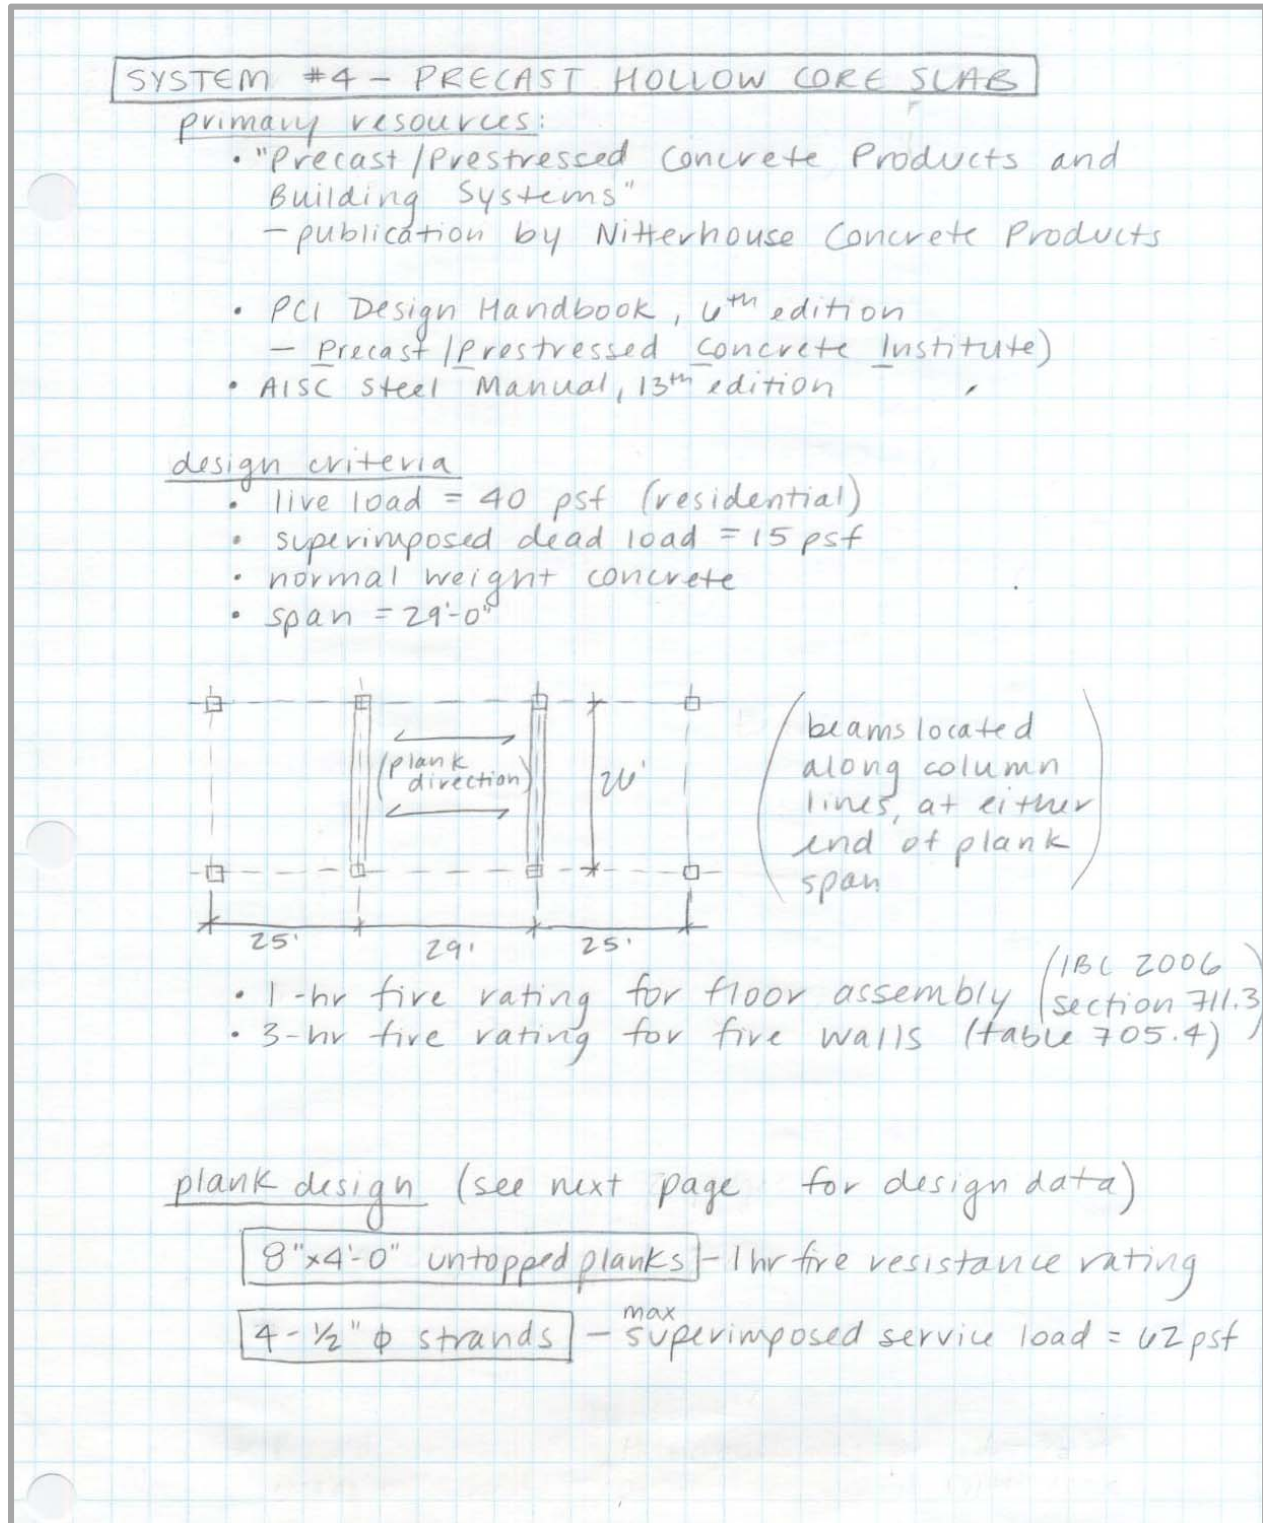 SYSTEM #4 - PRECAST HOLLOW CORE SLAB
primary resources:
• "Precast/Prestressed Concrete Products and
Building Systems"
- publication by Nitterhouse Concrete Products
• PCI Design Handbook, 6th edition
- Precast/Prestressed Concrete Institute)
• AISC Steel Manual, 13th edition
design criteria
• live load = 40 psf (residential)
• superimposed dead load = 15 psf
• normal weight concrete
• span = 29'-0"
(plank
direction)
26'
(beams located
along column
lines, at either
end of plank
span)
25' 29' 25'
• 1-hr fire rating for floor assembly (IBC 2006
section 711.3)
• 3-hr fire rating for fire walls (table 705.4)
plank design (see next page for design data)
8"x4'-0" untopped planks - 1 hr fire resistance rating
4 - 1/2" ϕ strands - max superimposed service load = 62 psf